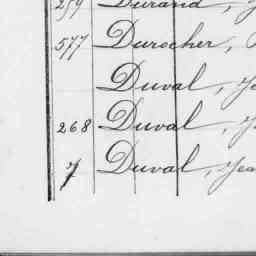 259 Durand,
577 Durocher,
Duval,
268 Duval,
7 Duval,